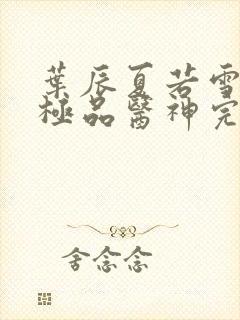 葉辰夏若雪
極品醫神完
舍念念